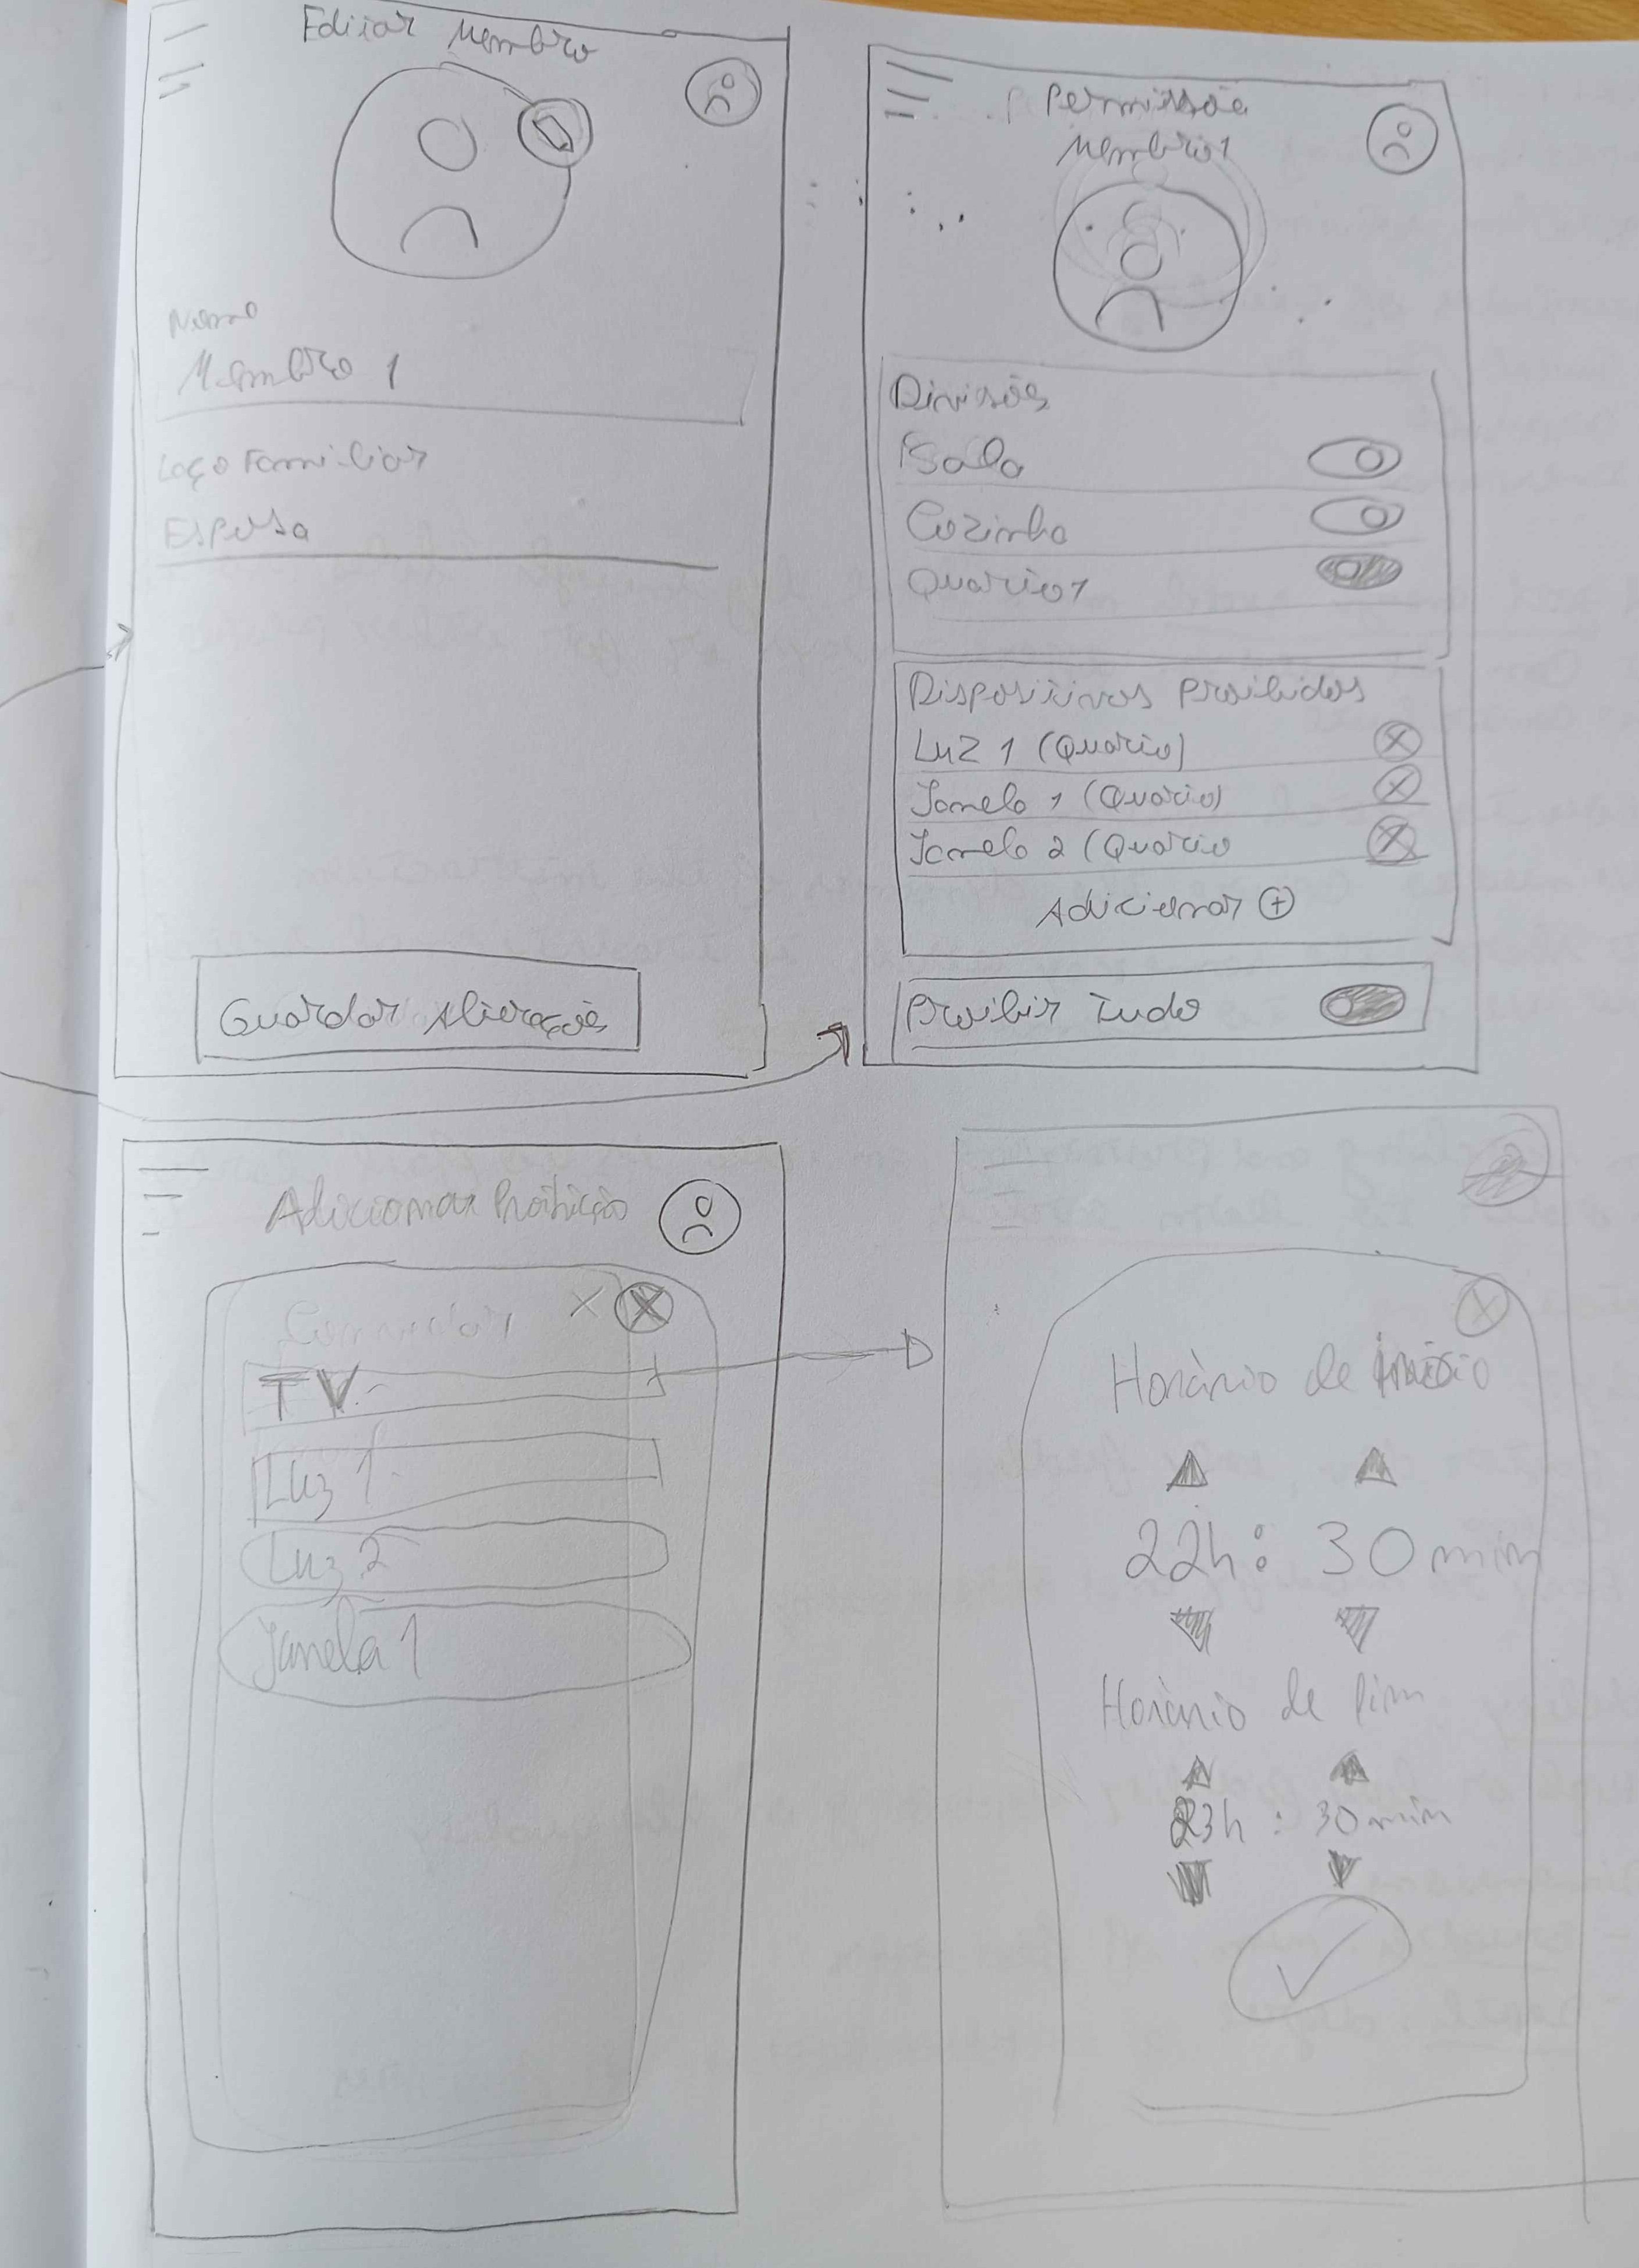 Editar Membro
Nome
Membro 1
Laço Familiar
Esposa
Guardar Alterações
Permissão
Membro 1
Divisões
Sala
Cozinha
Quarto 1
Dispositivos Proibidos
Luz 1 (Quarto)
Janela 1 (Quarto)
Janela 2 (Quarto
Adicionar +
Proibir Tudo
Adicionar Proibição
TV
Luz 1
Luz 2
Janela 1
Horário de início
22h : 30 min
Horário de fim
23h : 30 min